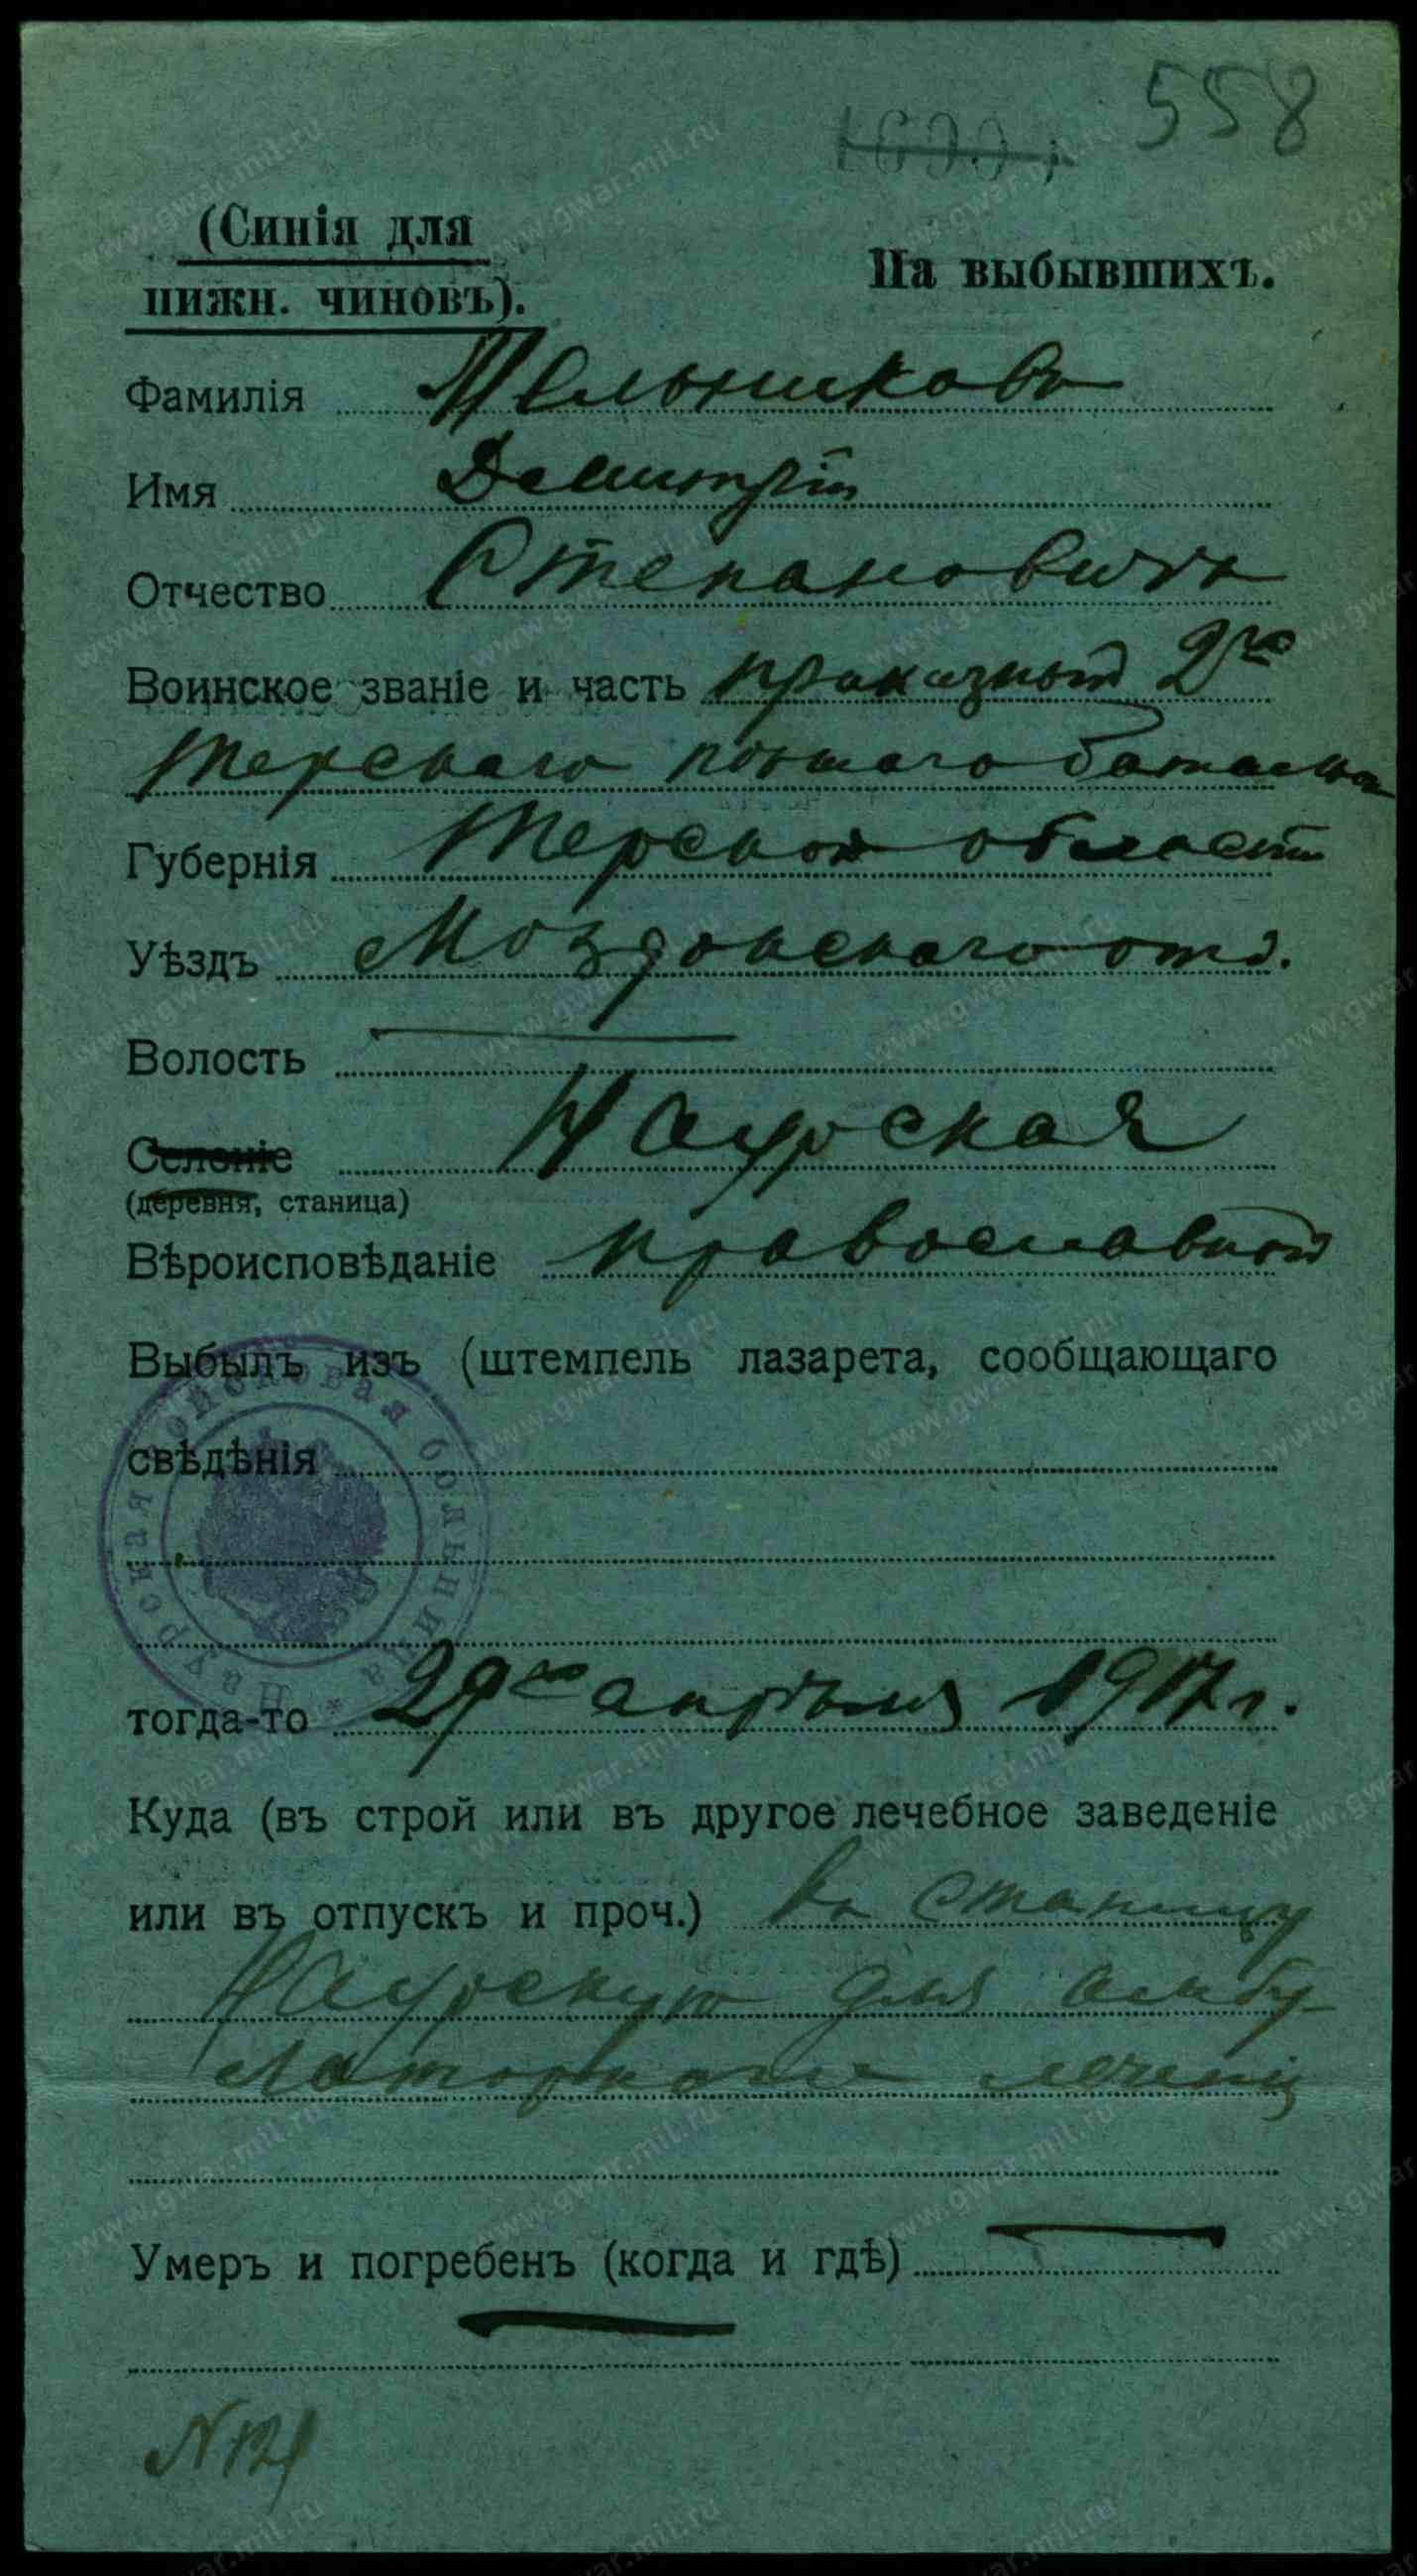 558
(Синія для
нижн. чиновъ).
На выбывшихъ.
Фамилія Мельниковъ
Имя Димитрій
Отчество Степановичъ
Воинское званіе и часть приказный 2го
Терскаго пѣшаго батальона
Губернія Терской области
Уѣздъ Моздокскаго отд.
Волость —
Селеніе Наурская
(деревня, станица)
Вѣроисповѣданіе православный
Выбылъ изъ (штемпель лазарета, сообщающаго
свѣдѣнія
Наурская войсковая больница *
тогда-то 29го апрѣля 1917 г.
Куда (въ строй или въ другое лечебное заведеніе
или въ отпускъ и проч.) въ станицу
Наурскую для амбу-
латорнаго леченія
Умеръ и погребенъ (когда и гдѣ) —
—